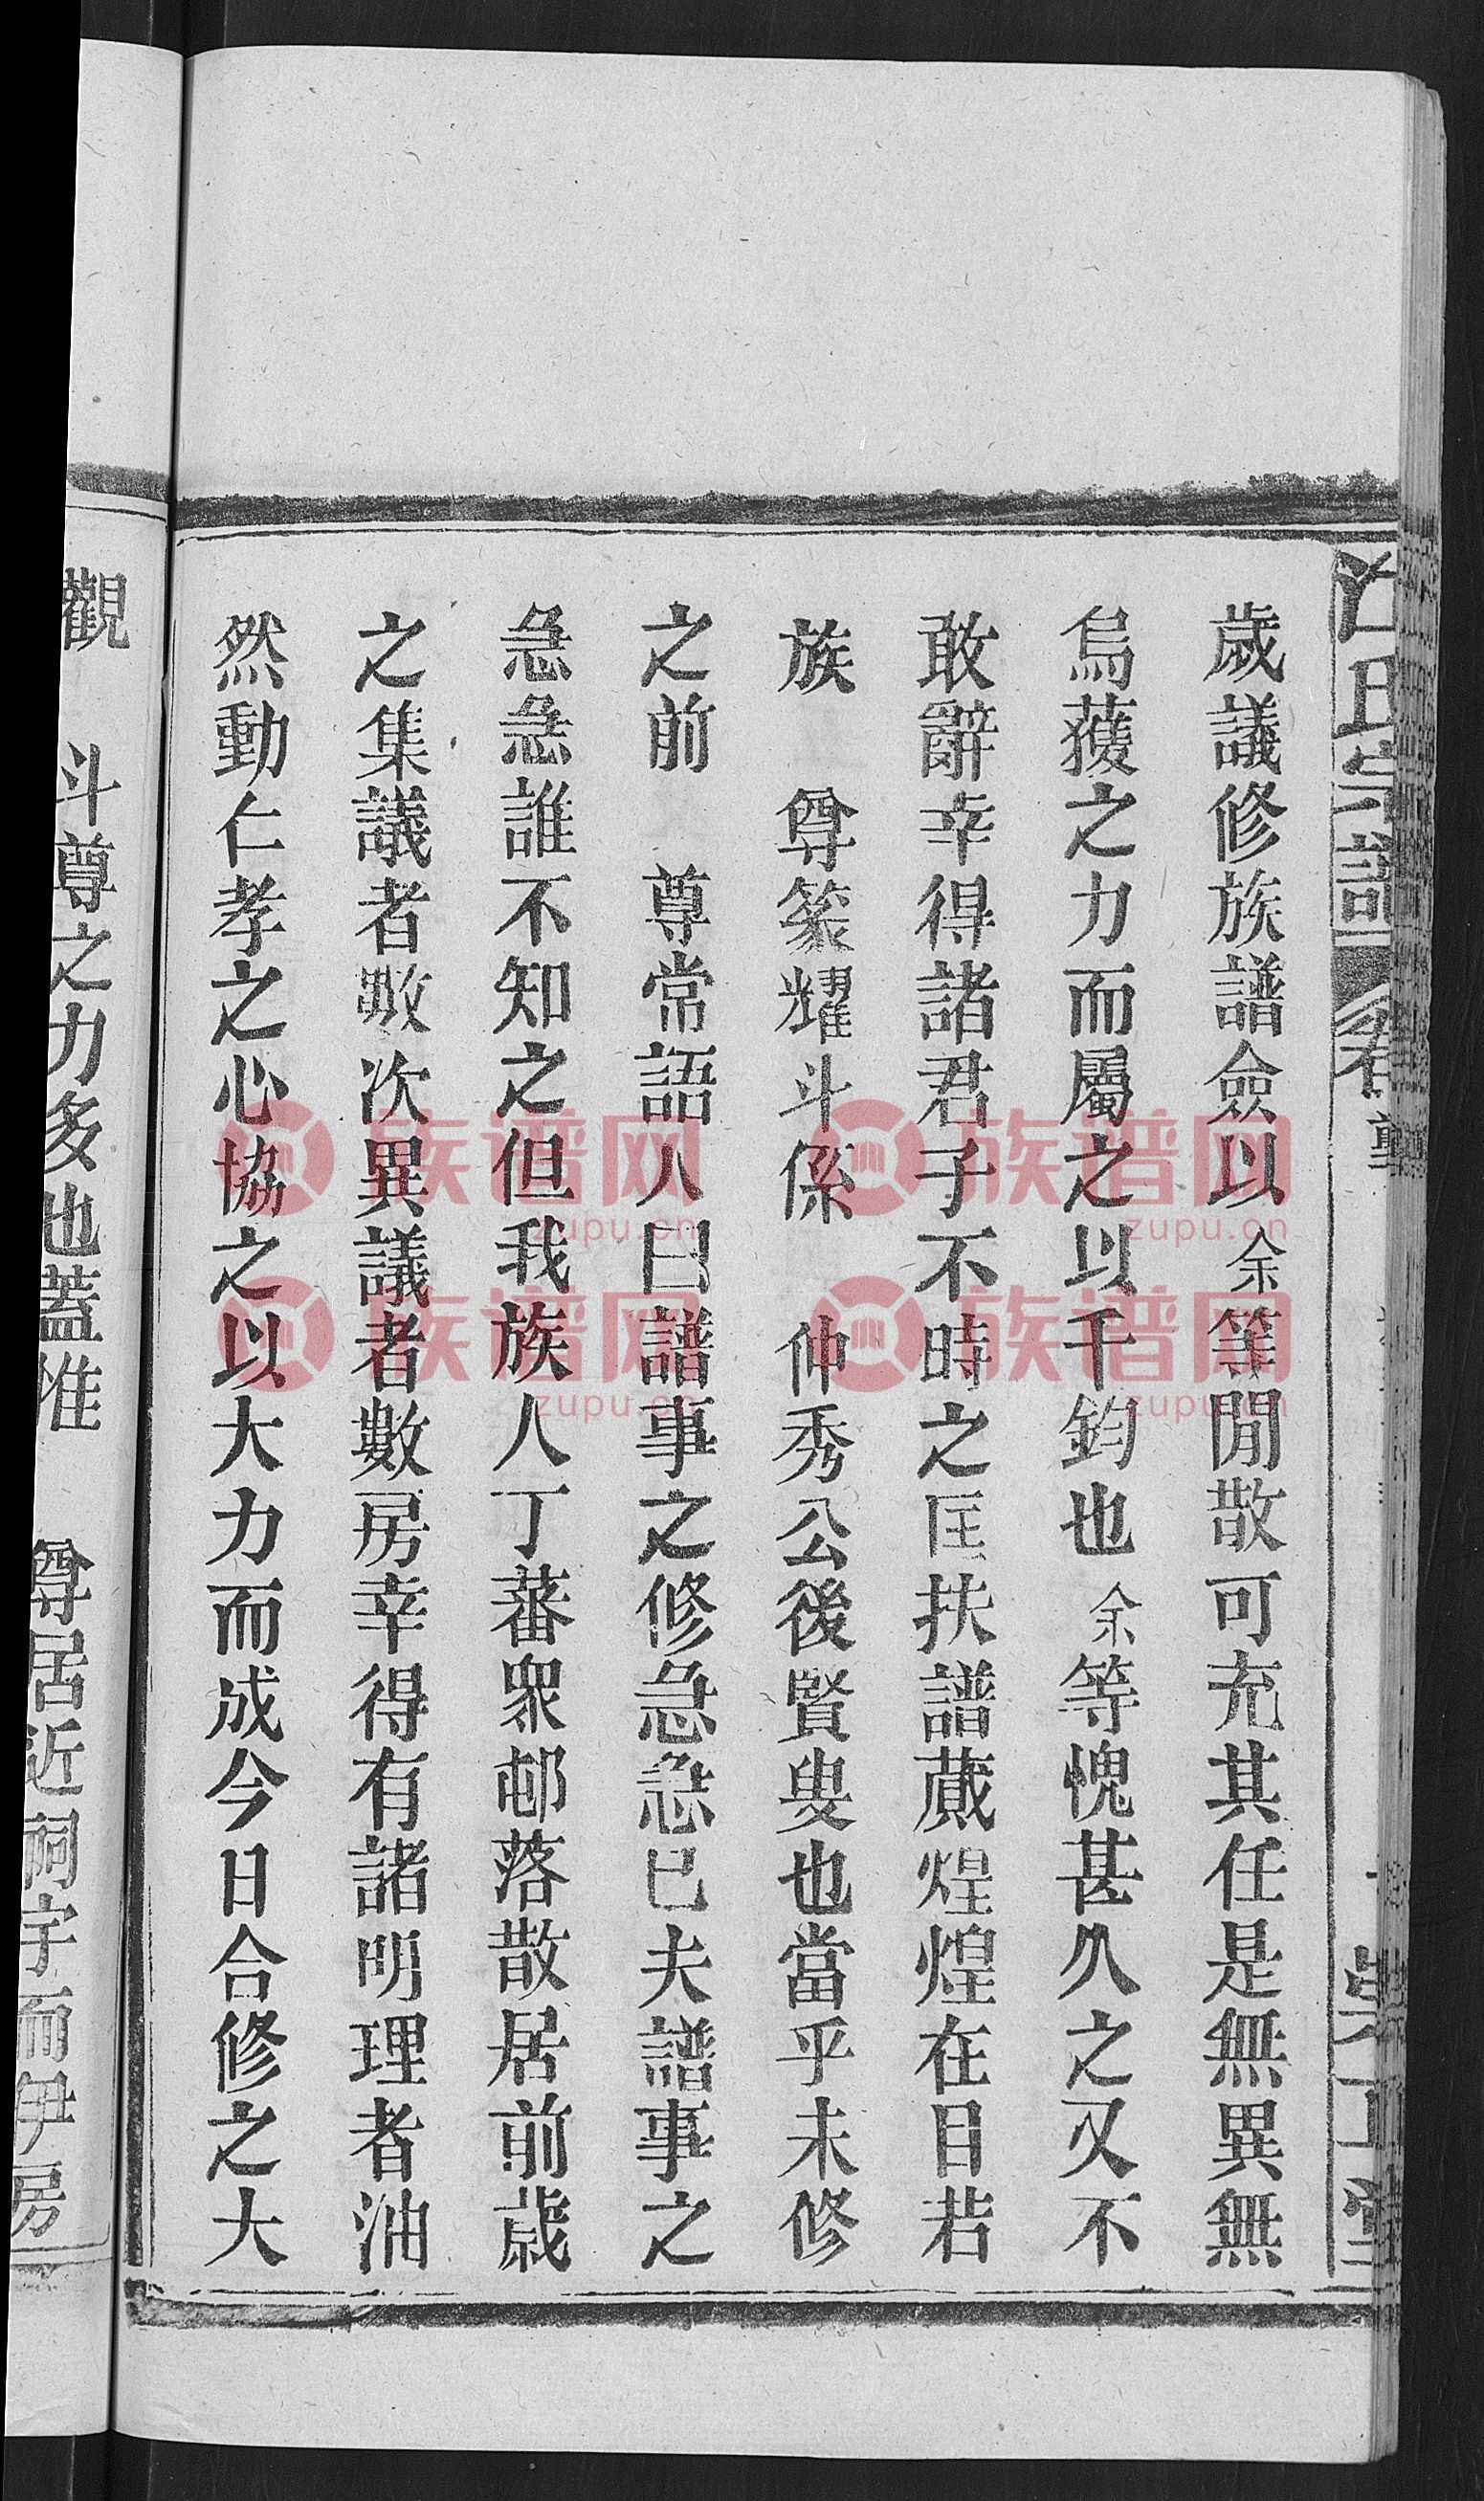 歲議修族譜僉以余等閒散可充其任是無異無
烏獲之力而屬之以千鈞也余等愧甚久之又不
敢辭幸得諸君子不時之匡扶譜蕆煌煌在目若
族 尊篆耀斗係 仲秀公後賢叟也當乎未修
之前 尊常語人曰譜事之修急急已夫譜事之
急急誰不知之但我族人丁蕃眾邨落散居前歲
之集議者數次異議者數房幸得有諸明理者油
然動仁孝之心協之以大力而成今日合修之大
觀 斗尊之力多也蓋惟 尊居近祠宇而伊房
氏宗譜
卷
族谱网
zupu.cn
族谱网
zupu.cn
族谱网
zupu.cn
族谱网
zupu.cn